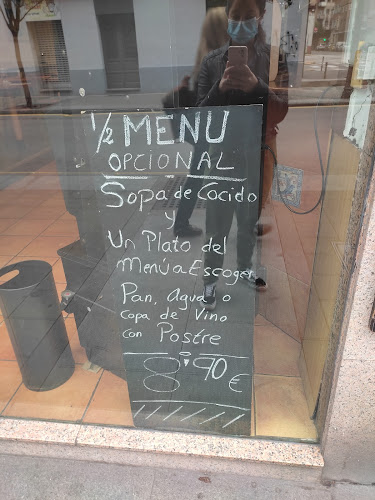 ½ MENU
OPCIONAL
Sopa de Cocido
y
Un Plato del
Menú a Escoger
Pan, Agua o
Copa de Vino
con Postre
8'90 €